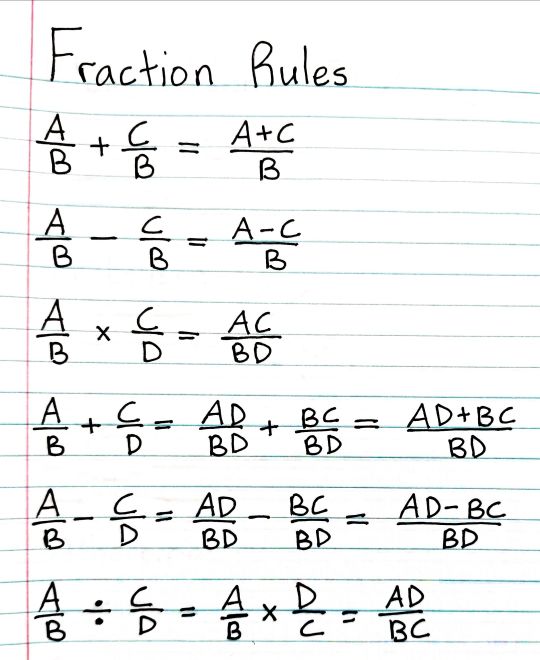 Fraction Rules
A/B + C/B = A+C/B
A/B − C/B = A−C/B
A/B × C/D = AC/BD
A/B + C/D = AD/BD + BC/BD = AD+BC/BD
A/B − C/D = AD/BD − BC/BD = AD−BC/BD
A/B ÷ C/D = A/B × D/C = AD/BC